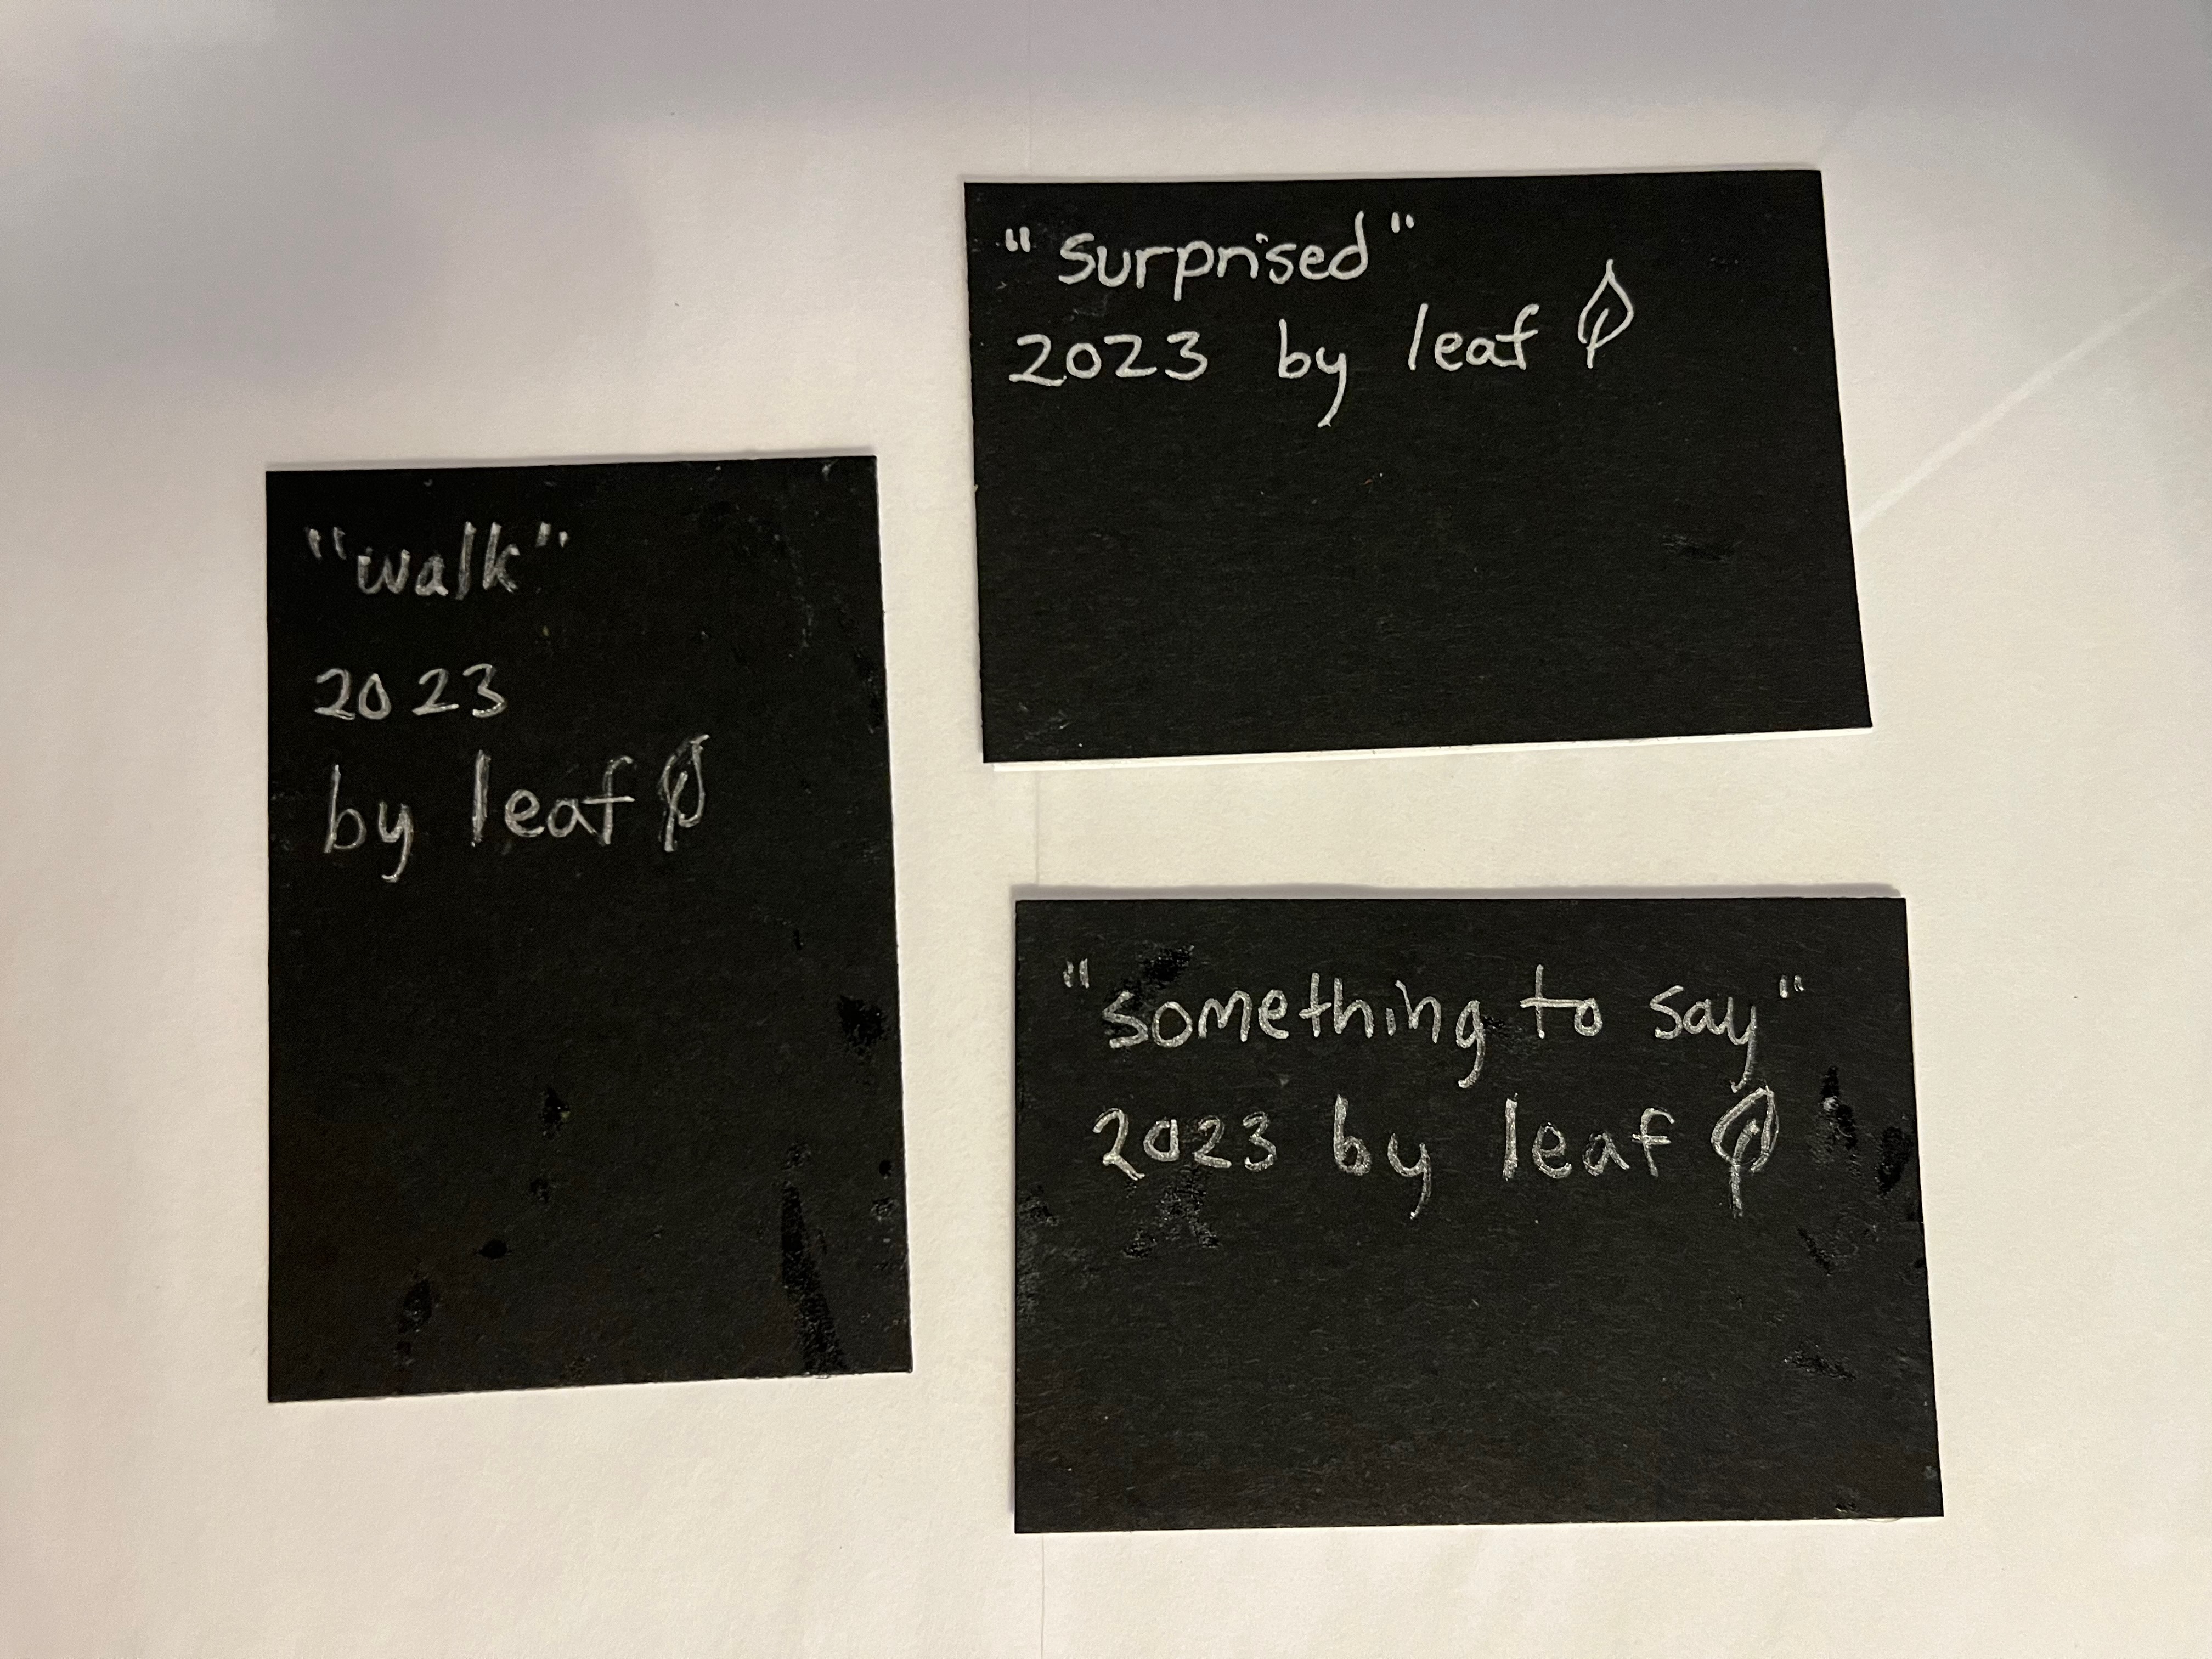 "walk"
2023
by leaf
"surprised"
2023 by leaf
"something to say"
2023 by leaf